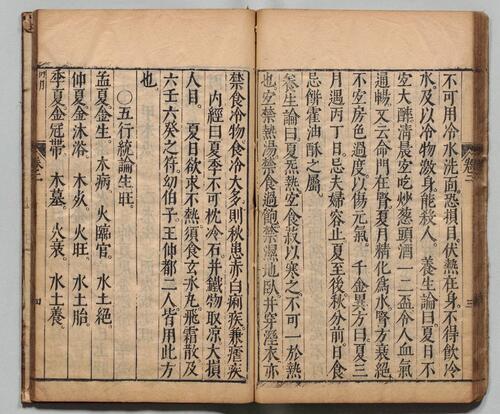 不可用冷水洗面恐損目。伏熱在身。不得飲冷
水。及以冷物激身。能殺人。 養生論曰。夏日不
空大醉。清晨空吃炒葱頭酒一二盃。令人血氣
通暢。又云。命門在腎。夏月精化爲水。腎方衰絕。
不空房色過度。以傷元氣。 千金異方曰。夏三
月。遇丙丁日。忌夫婦容止。夏至後秋分前。日食
忌餅霍油酥之屬。
養生論曰。夏炁熱。空食菽以寒之。不可一於熱
也。空禁熱湯。禁食過飽。禁濕地臥。并穿溼衣。亦
禁食冷物。食冷大多。則秋患赤白痢疾。兼瘧疾
內經曰。夏季不可枕冷石。并鐵物取凉。大損
人目。 夏日欲求不熱。須食玄水丸。飛霜散。及
六壬六癸之符。幼伯子。王仲都二人。皆用此方
也。
○五行統論生旺。
孟夏金生。 木病。 火臨官。 水土絕。
仲夏金沐浴。 木𣦸。 火旺。 水土胎。
季夏金冠帶。 木墓。 火衰。 水土養。
卷二
三
卷二
四